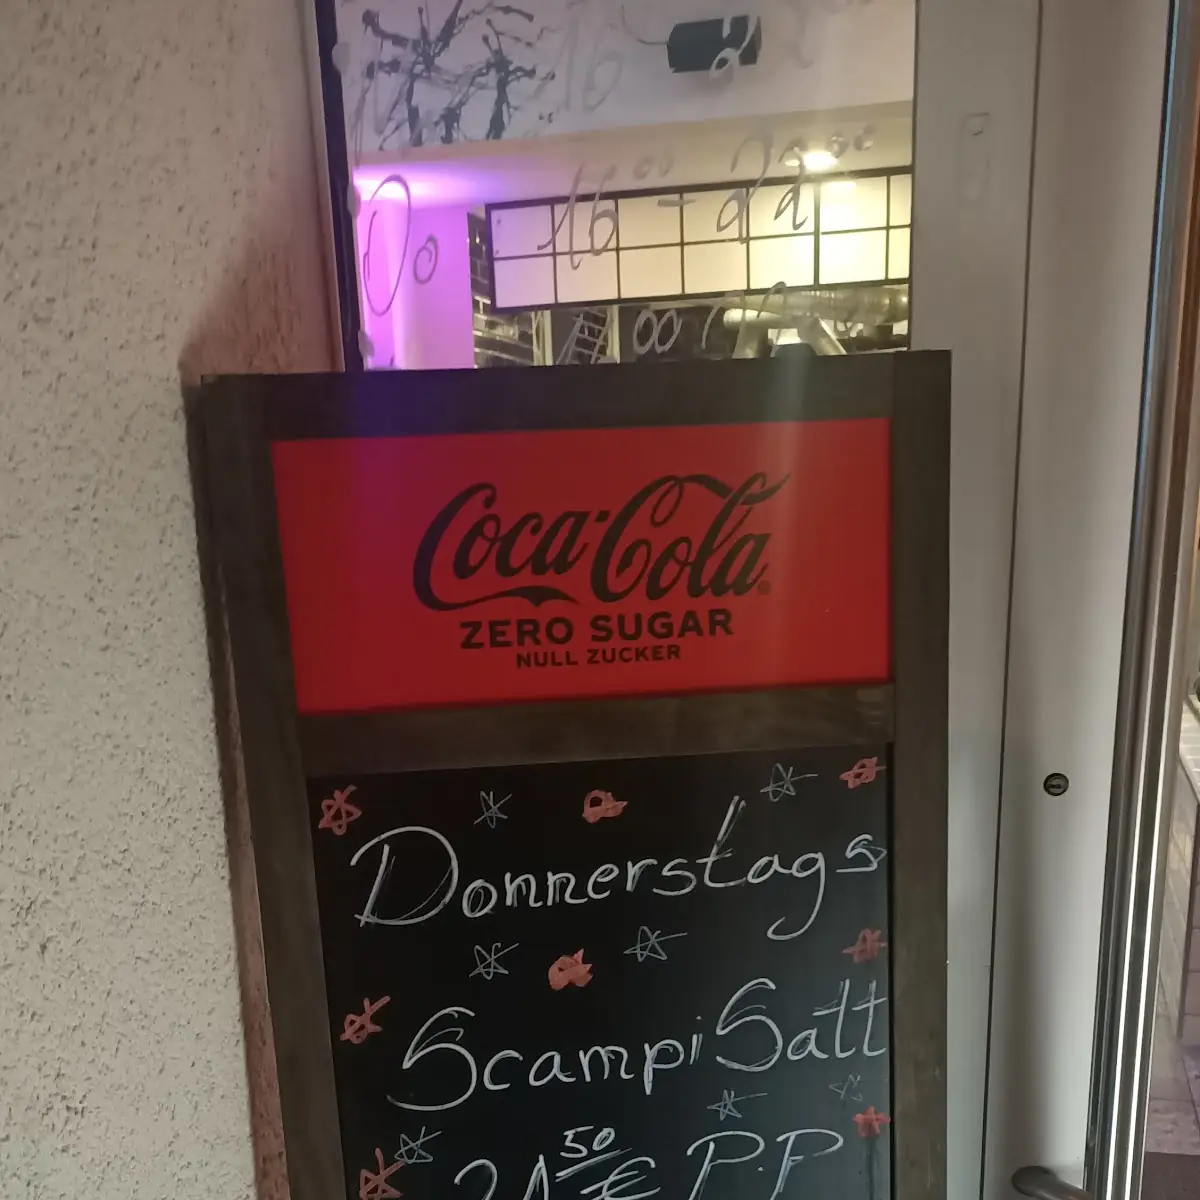 16 22
Do 16⁰⁰ - 22⁰⁰
Coca-Cola
ZERO SUGAR
NULL ZUCKER
Donnerstags
Scampi Satt
21⁵⁰ € P.P